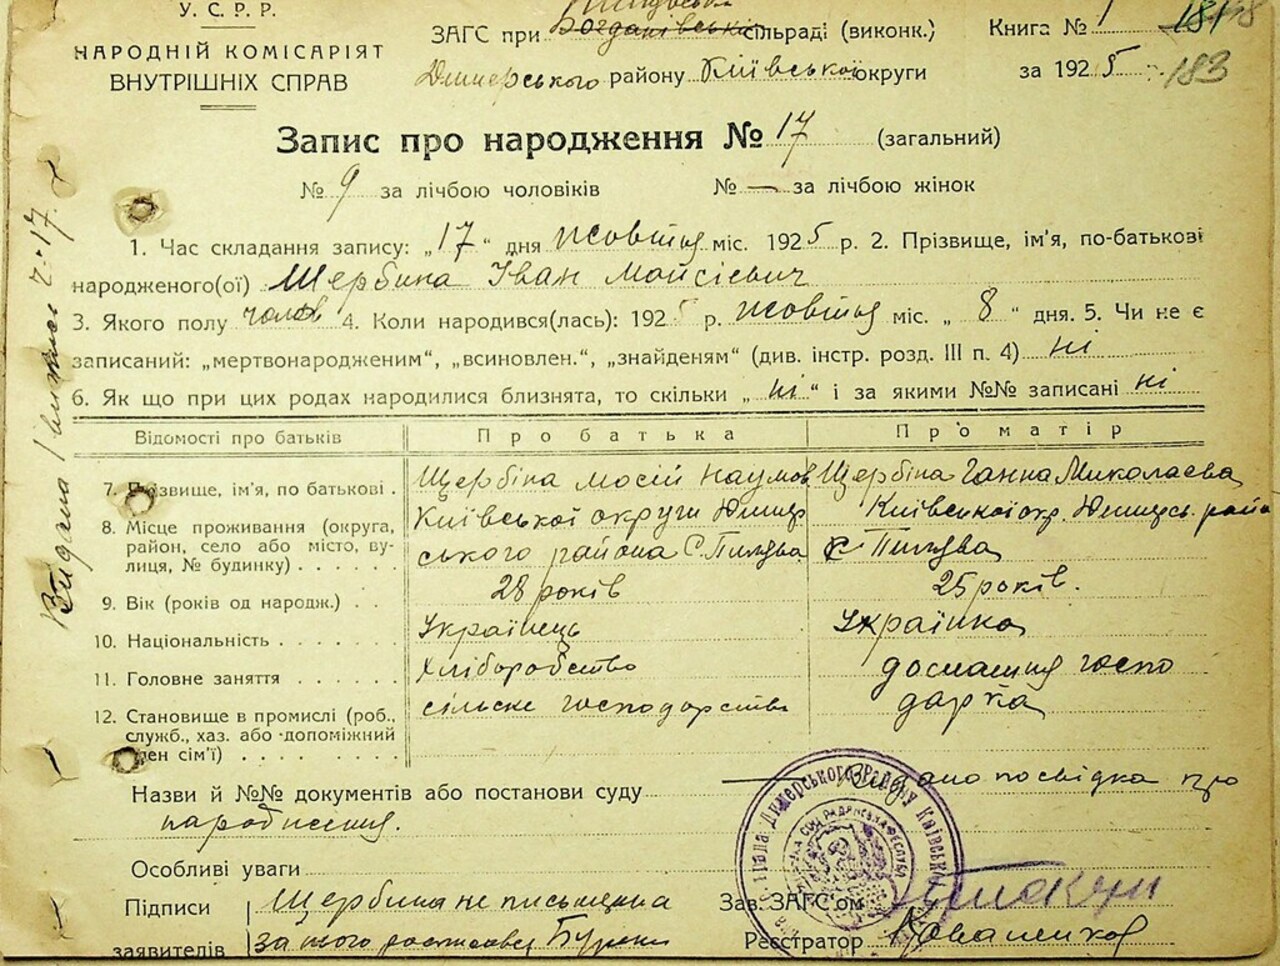 У.С.Р.Р.
НАРОДНІЙ КОМІСАРІЯТ
ВНУТРІШНІХ СПРАВ
ЗАГС при Богданівські сільраді (виконк.)
Димерського району Київської округи
Книга № 1 181
за 1925 183
Запис про народження № 17 (загальний)
№ 9 за лічбою чоловіків № — за лічбою жінок
1. Час складання запису: „17“ дня жовтня міс. 1925 р. 2. Прізвище, ім'я, по-батькові
народженого(ої) Щербина Іван Мойсієвич
3. Якого полу чолов 4. Коли народився(лась): 1925 р. жовтня міс. „ 8 “ дня. 5. Чи не є
записаний: „мертвонародженим“, „всиновлен.“, „знайденям“ (див. інстр. розд. III п. 4) ні
6. Як що при цих родах народилися близнята, то скільки „ ні “ і за якими №№ записані ні
Відомості про батьків Про батька Про матір
7. Прізвище, ім'я, по батькові . Щербіна Мосій Наумов Щербіна Ганна Миколаєва
8. Місце проживання (округа, Київської округи Димер Київської окр. Димерсь. район
район, село або місто, ву- ського района С. Пилява с Пилява
лиця, № будинку) . . . . . .
9. Вік (років од народж.) . . 28 років 25 років.
10. Національність . . . . . . . Українець Українка
11. Головне заняття . . . . . . Хліборобство домашня госпо
12. Становище в промислі (роб., сільске господарство дарка
служб., хаз. або допоміжний
член сім'ї) . . . . . . . .
Назви й №№ документів або постанови суду Видано посвідка про
народження.
Особливі уваги
Підписи Щербина не письменна
заявителів за його росписався
Зав. ЗАГС'ом
Реєстратор Коваленко
Димерського Району Київсько
Видана
ч. 17